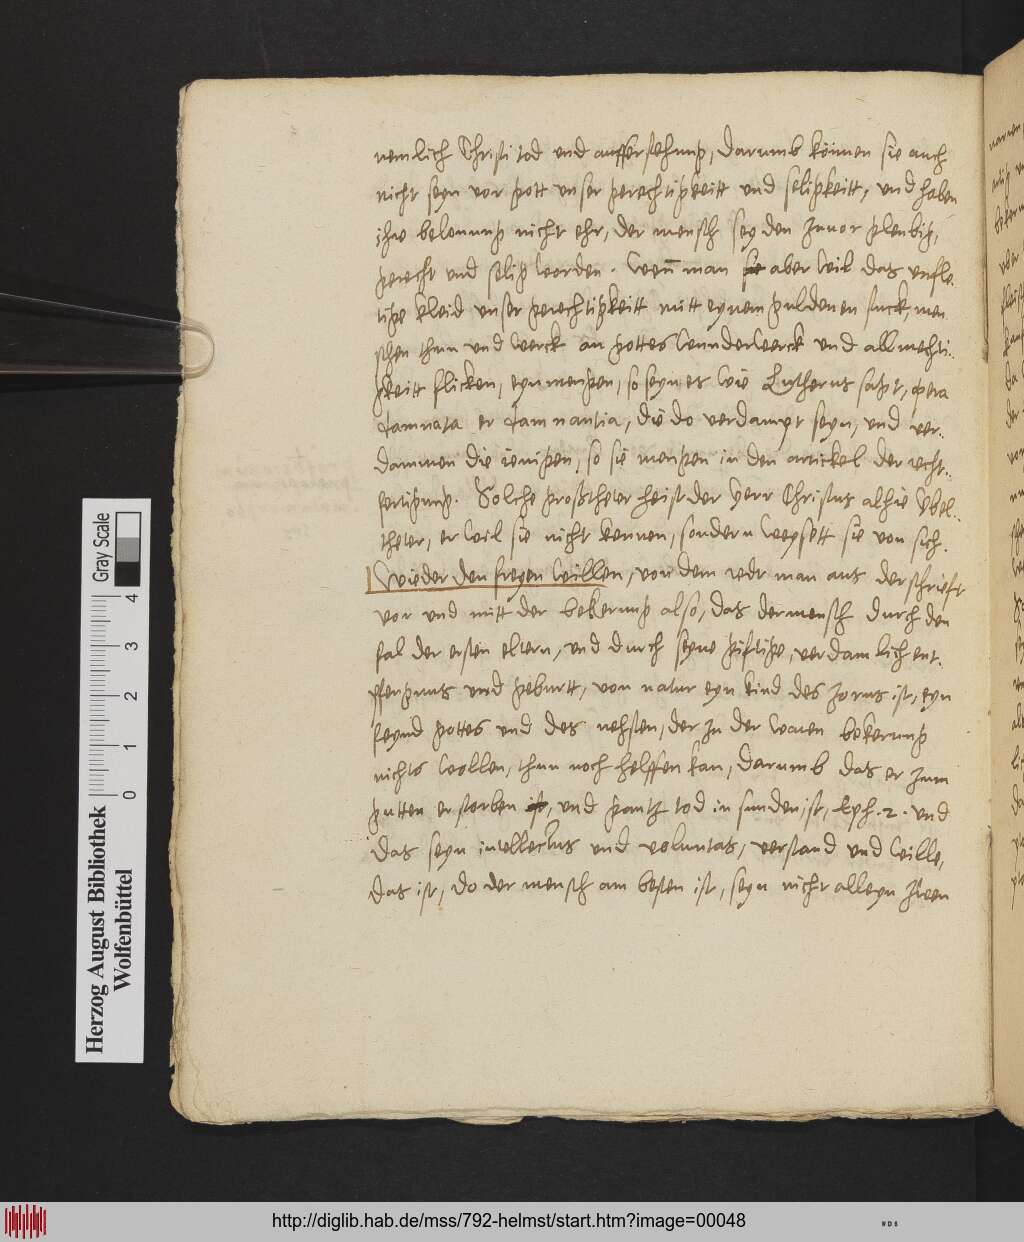 nemlich Christi tod und aufferstehung, darumb können sie auch
nicht seyn vor gott unser gerechtigkeitt und seligkeitt, und haben
ihre belonung nicht ehr, der mensch sey den zuvor glenbig,
gerecht und selig worden. Wen man aber wil das unfle¬
tige kleid unser gerechtigkeitt mitt eynem guldenen stuck, men
schen thun und werck an gottes wunderwerck und allmechti¬
gkeitt flicken, eynmengen, so seyn es wie Lutherus sagt, opera
damnata et damnantia, die do verdampt seyn, und ver¬
dammen die ienigen, so sie mengen in den artickel der recht¬
fertigung. Solche großtheter heist der Herr Christus alhie Übel¬
theter, er wil sie nicht kennen, sondern weysett sie von sich.
Wieder den freyen Willen, von dem redt man aus der schriefft
vor und mitt der bekerung also, das der mensch durch den
fal der ersten eltern, und durch seyne gifftige, verdamlich ent¬
pfengnus und geburtt, von natur eyn kind des zorns ist, eyn
feynd gottes und des nehsten, der zu der waren bekerung
nichts wollen, thun noch helffen kan, darumb das er zum
gutten erstorben ist, und gantz tod in sunden ist, Eph. 2. und
das seyn intellectus und voluntas, verstand und wille,
das ist, do der mensch am besten ist, seyn nicht alleyn zwen
Gray Scale
0 1 2 3 4
Herzog August Bibliothek
Wolfenbüttel
http://diglib.hab.de/mss/792-helmst/start.htm?image=00048